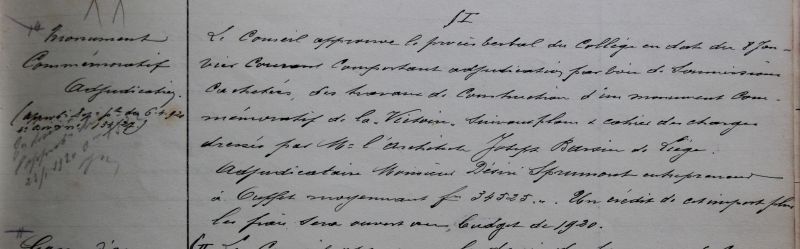 § I
Monument
Commémoratif
Adjudication
Le Conseil approuve le procès verbal du Collège en date du 8 Jan-
vier Courant Comportant adjudication, par voie de Soumissions
Cachetées, des travaux de Construction d'un monument Com-
mémoratif de la Victoire. Suivant plans & cahier des charges
dressés par Mr l'Architecte Joseph de Liège.
Adjudicataire Monsieur Désiré Sprumont entrepreneur
à Ouffet moyennant fr 34525 „. Un crédit de cet import plus
les frais sera ouvert au budget de 1920.
§ II Le